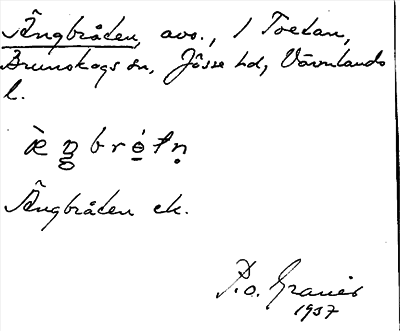 Ängbråten, avs., i Toetan,
Brunskogs sn, Jösse hd, Värmlands
l.
Ängbråten ek.
P.o. Granér
1937